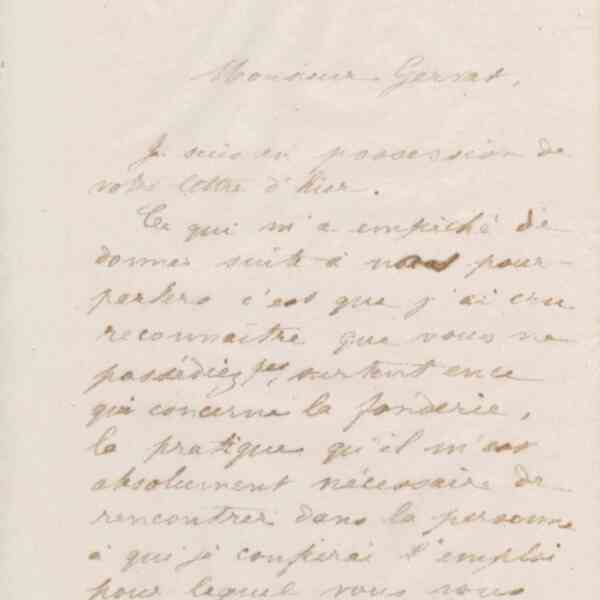 Monsieur Gervat,
Je suis en possession de
votre lettre d'hier.
Ce qui m'a empêché de
donner suite à nous pour-
parlers c'est que j'ai cru
reconnaître que vous ne
possédiez pas, surtout en ce
qui concerne la fonderie,
la pratique qu'il m'est
absolument nécessaire de
rencontrer dans la personne
à qui je confierai l'emploi
pour lequel vous vous